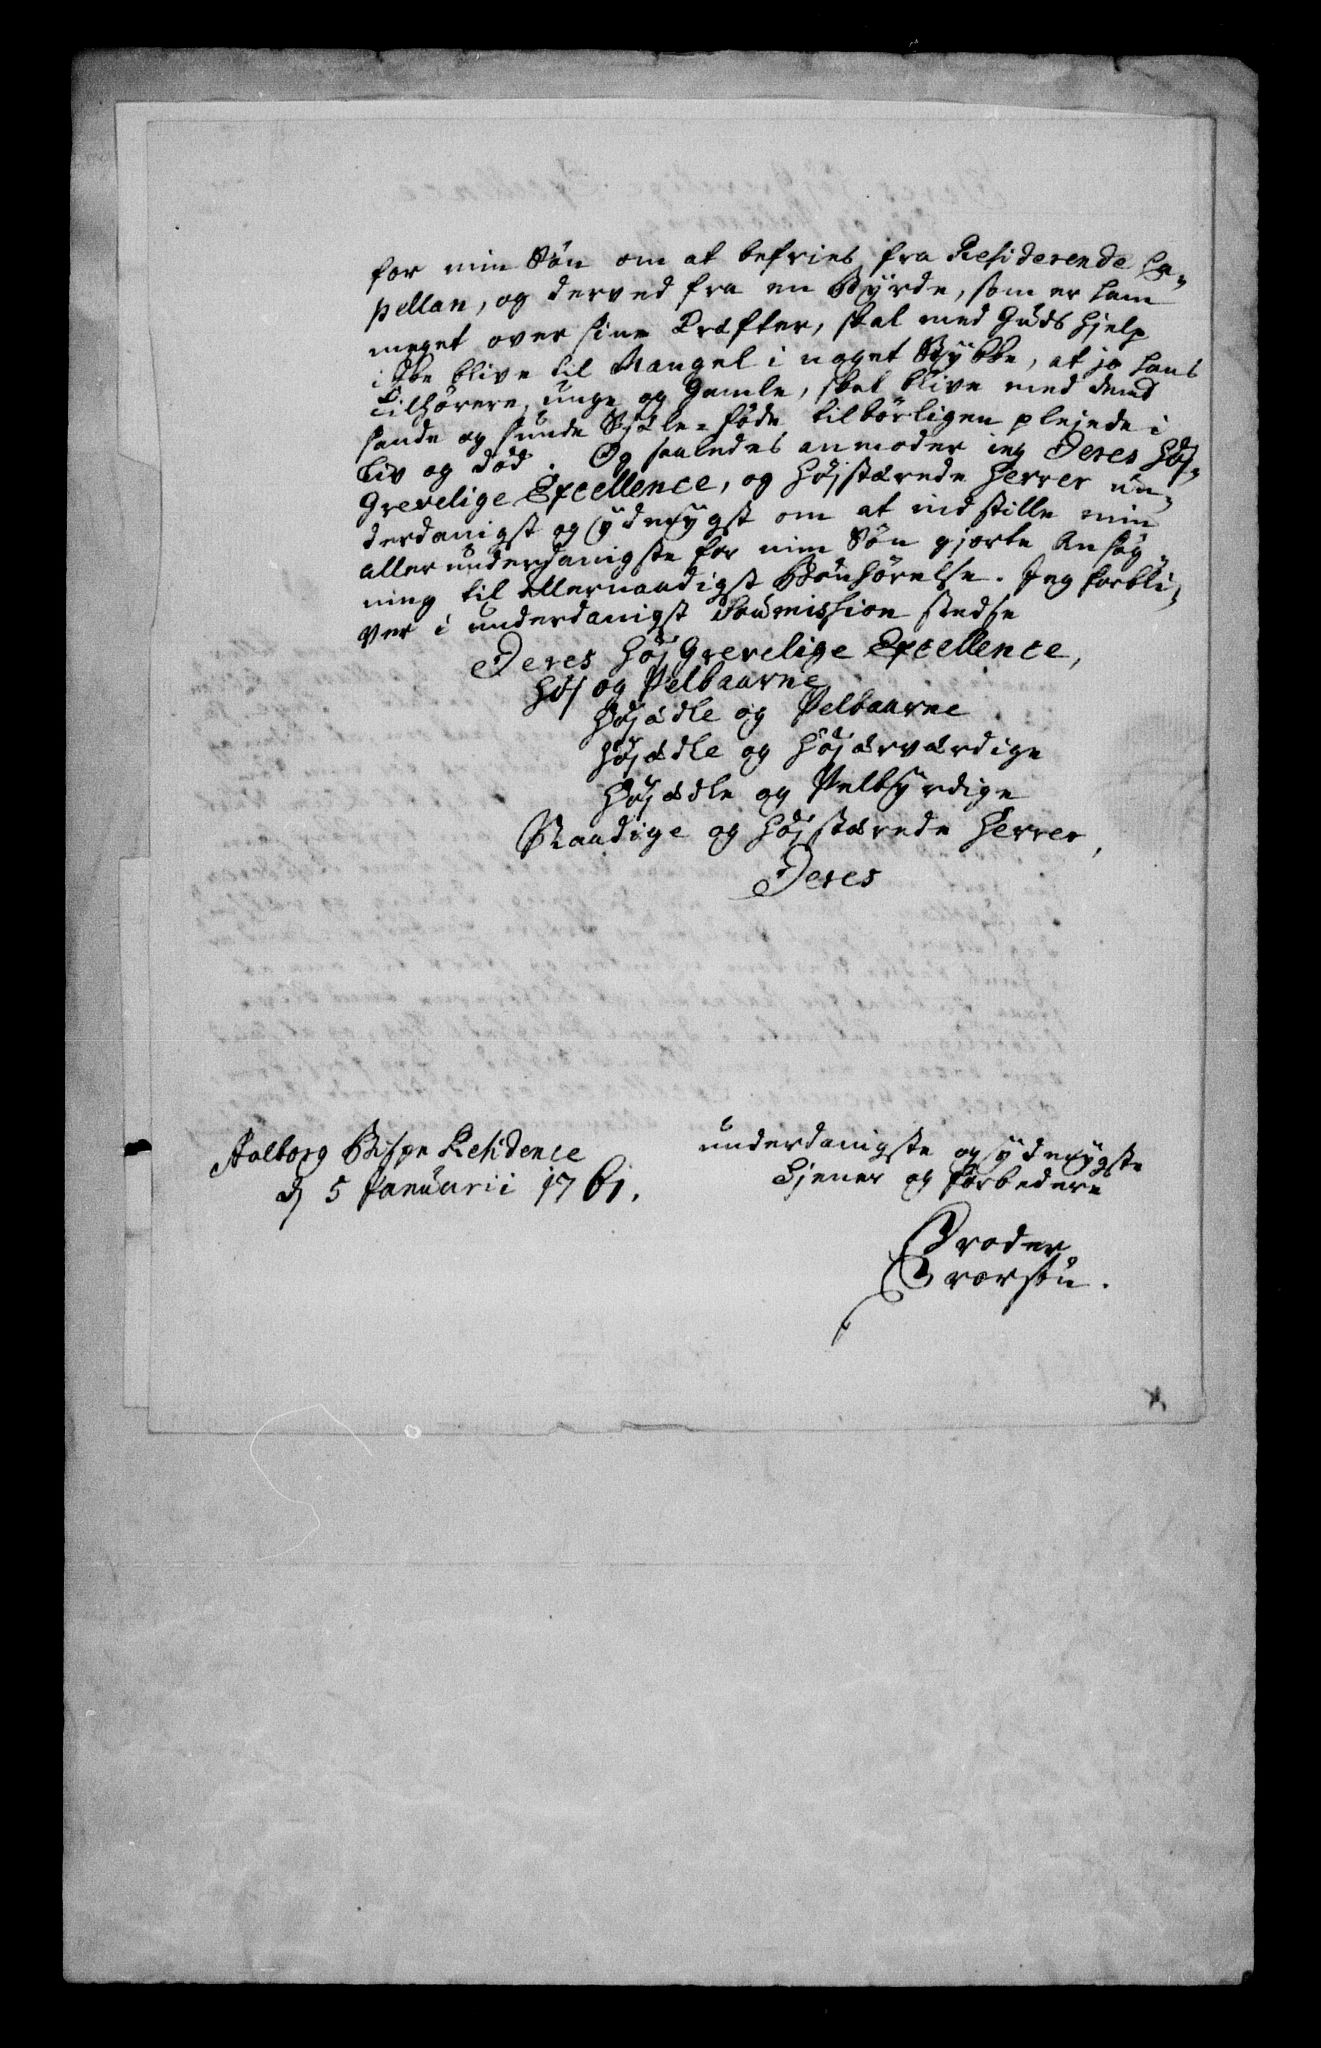 for min Søn om at befries fra Residerende Ca-
pellan, og derved fra en Byrde, som er ham
meget over sine Kræfter, skal med Guds Hjelp
ikke blive til Mangel i noget Stykke, at jo hans
Tilhørere, unge og Gamle, skal blive med dend
sande og sunde Siæle-føde tilbørligen plejede i
Liv og Død. Og saaledes anmoder ieg Deres Høj-
Grevelige Excellence, og højstærede Herrer un-
derdanigst og ydmygst om at indstille min
allerunderdanigste for min Søn gjorte Ansøg
ning til Allernaadigst Bønhørelse. Jeg forbli-
ver i underdanigst Soumission stedse
Deres HøjGrevelige Excellence,
Høj og Velbaarne
Højædle og Velbaarne
Højædle og Højærværdige
Højædle og Velbyrdige
Naadige og Højstærede Herrer,
Deres
underdanigste og ydmygste
Tjener og forbedere
Aalborg Bispe Residence
d 5 Januarii 1761.
Broder
Brorsøn.